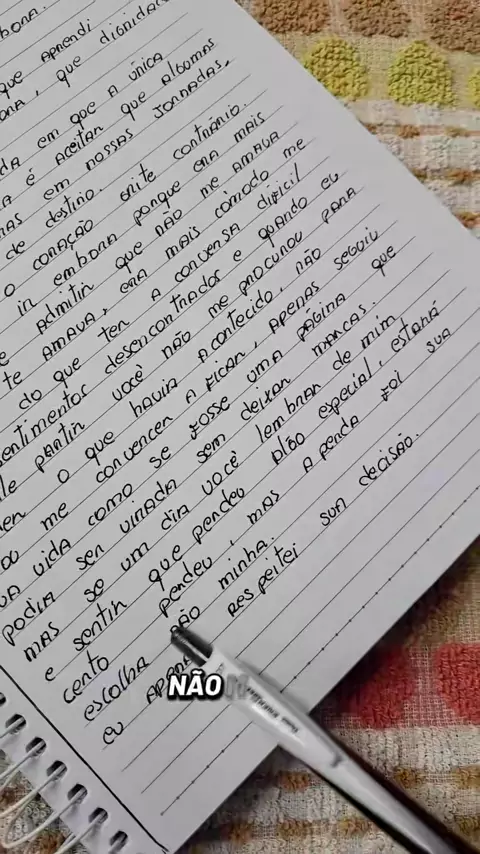 bora.
que aprendi
, que dignidade
em que a única
é aceitar que algumas
em nossas jornadas,
de destino.
o coração grite contrário.
ir embora porque era mais
admitir que não me amava
te amava, era mais cômodo me
do que ter a conversa difícil
sentimentos desencontrados e quando eu
partir você não me procurou para
o que havia acontecido, não
me convencer a ficar, apenas seguiu
vida como se fosse uma página que
podia ser virada sem deixar marcas.
mas se um dia você lembrar de mim
e sentir que perdeu algo especial, estará
certo perdeu, mas a perda foi sua
escolha não minha.
eu apenas respeitei sua decisão.
NÃO